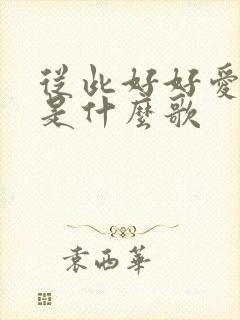 從此好好愛
是什麼歌
袁西華